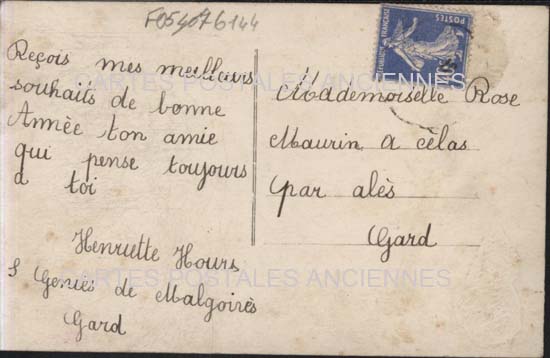 F059076144
Reçois mes meilleurs
souhaits de bonne
Année ton amie
qui pense toujours
a toi
Henriette Hours
S Geniès de Malgoirès
Gard
POSTES
Mademoiselle Rose
Maurin a cèlas
par alès
Gard
CARTES POSTALES ANCIENNES
CARTES POSTALES ANCIENNES